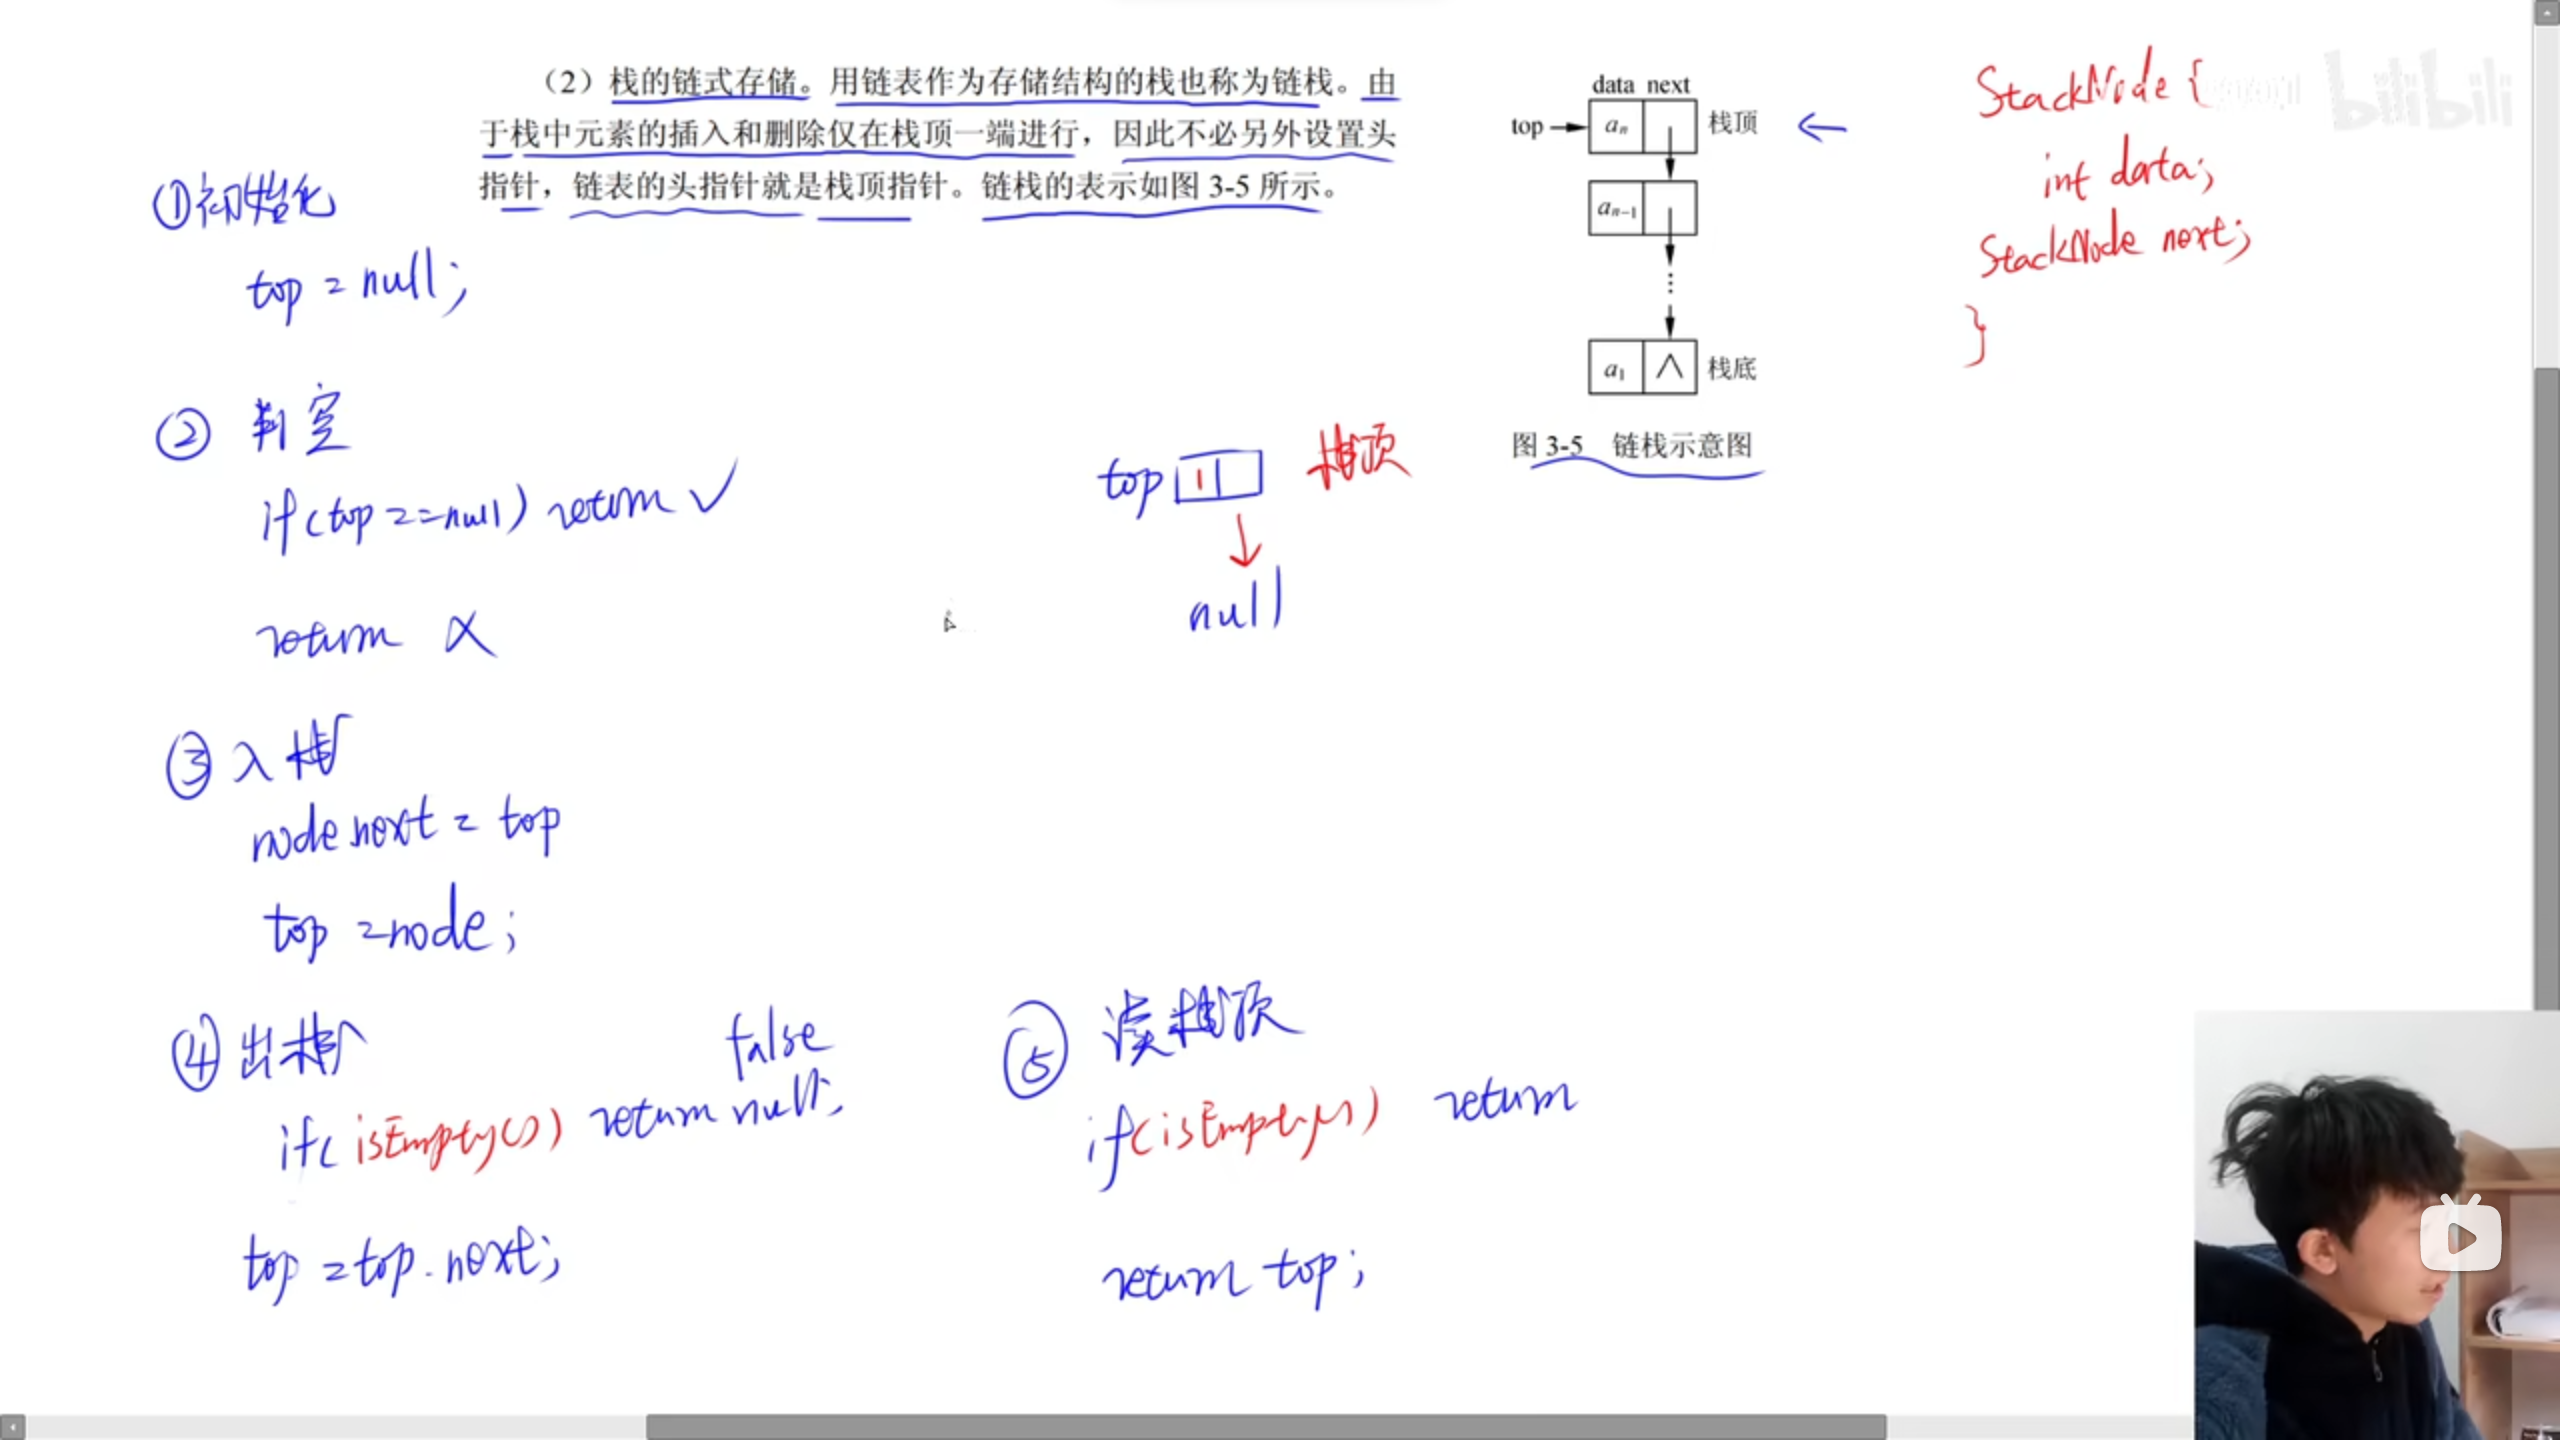 （2）栈的链式存储。用链表作为存储结构的栈也称为链栈。由
于栈中元素的插入和删除仅在栈顶一端进行，因此不必另外设置头
指针，链表的头指针就是栈顶指针。链栈的表示如图 3-5 所示。
data next
top
aₙ
栈顶
aₙ₋₁
⋮
a₁ ∧
栈底
图 3-5 链栈示意图
StackNode {
int data;
StackNode next;
}
bilibili
①初始化
top = null;
② 判空
if(top==null) return ✓
return ×
top 1 栈顶
null
③入栈
node.next = top
top = node;
④出栈
false
if(isEmpty()) return null;
top = top.next;
⑤ 读栈顶
if(isEmpty()) return
return top;